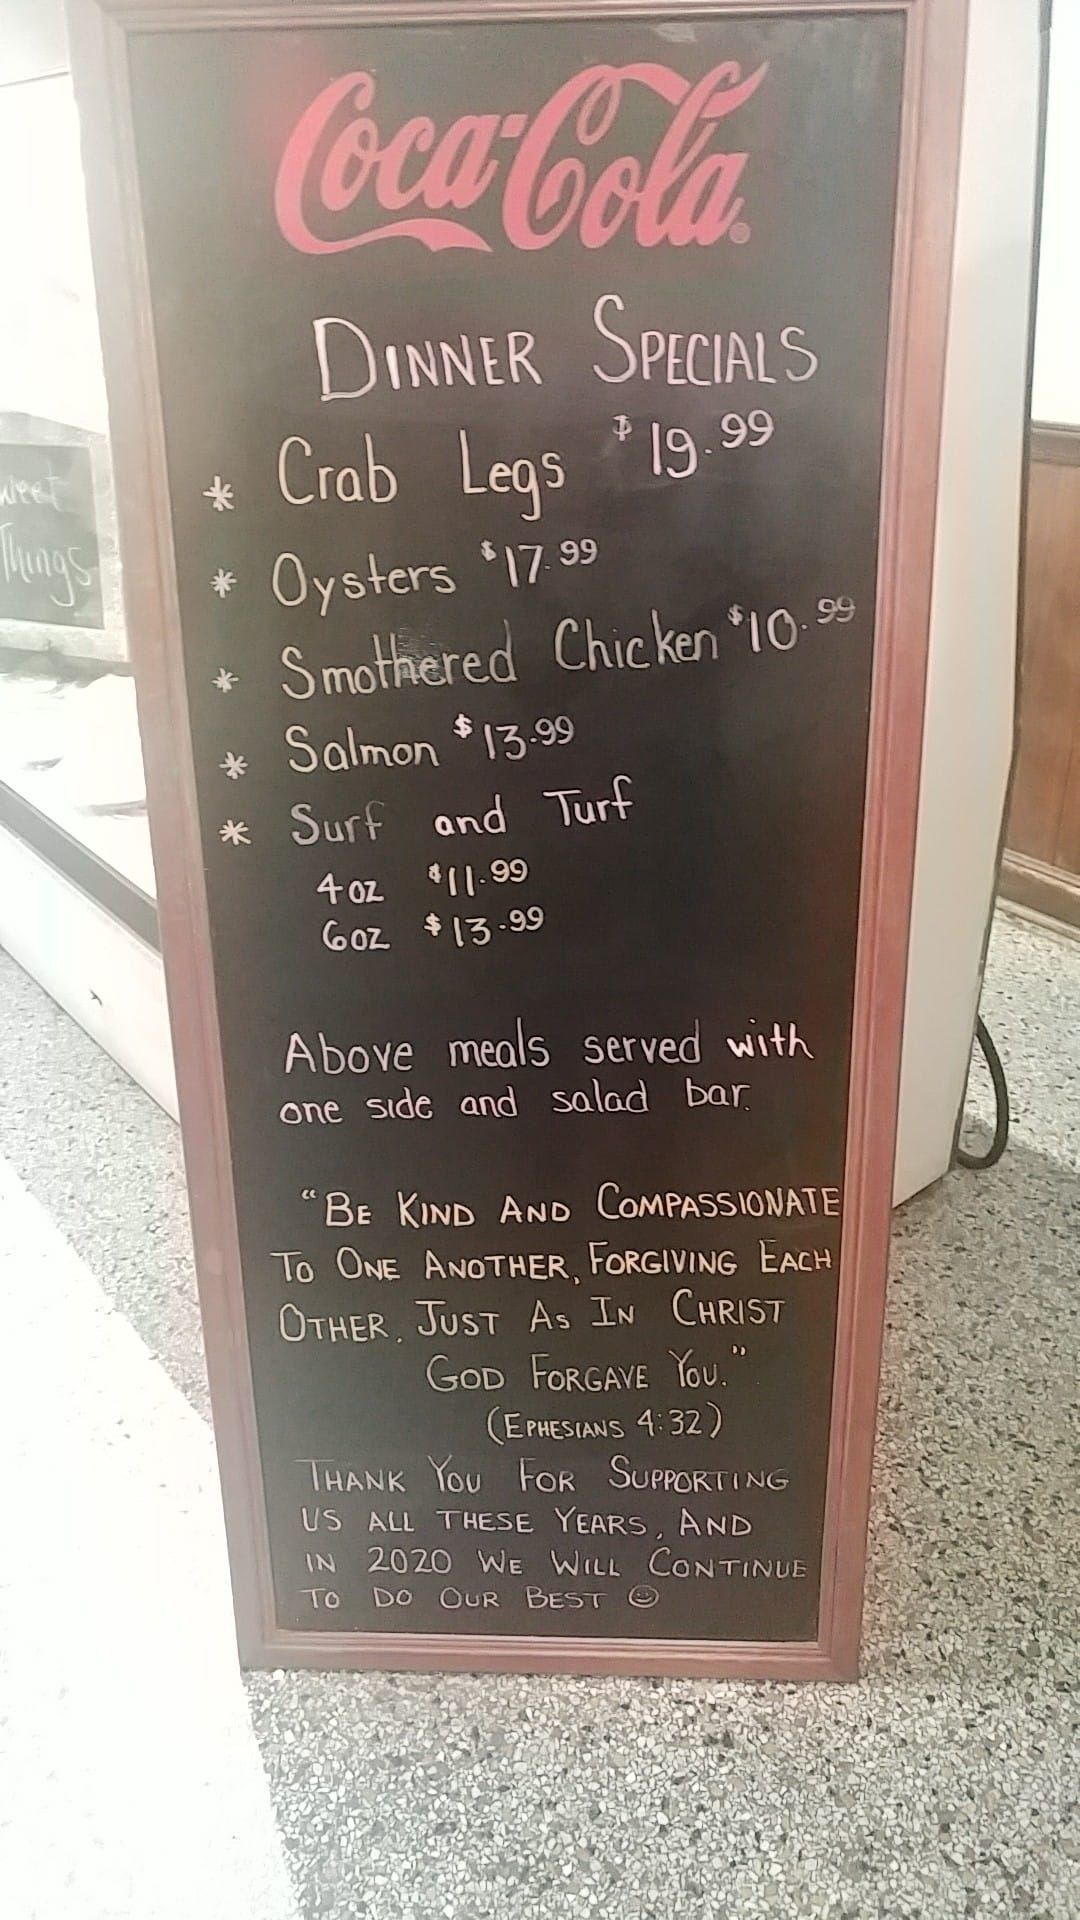 Coca-Cola®
DINNER SPECIALS
* Crab Legs $19.99
* Oysters $17.99
* Smothered Chicken $10.99
* Salmon $13.99
* Surf and Turf
4oz $11.99
6oz $13.99
Above meals served with
one side and salad bar.
"BE KIND AND COMPASSIONATE
TO ONE ANOTHER, FORGIVING EACH
OTHER, JUST AS IN CHRIST
GOD FORGAVE YOU."
(EPHESIANS 4:32)
THANK YOU FOR SUPPORTING
US ALL THESE YEARS, AND
IN 2020 WE WILL CONTINUE
TO DO OUR BEST ☺
Things